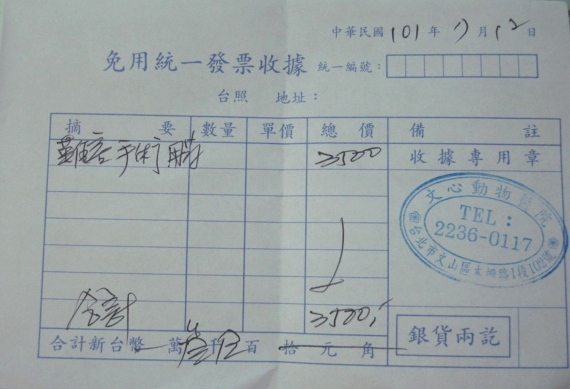 中華民國 101 年 月 12 日
免用統一發票收據 統一編號:
台照 地址:
摘 要 數量 單價 總 價 備 註
手術 3500 收據專用章
文心動物醫院
TEL:
2236-0117
台北市文山區木柵路1段102號
合計 3500
合計新台幣 萬 叁 仟 伍 百 拾 元 角 銀貨兩訖